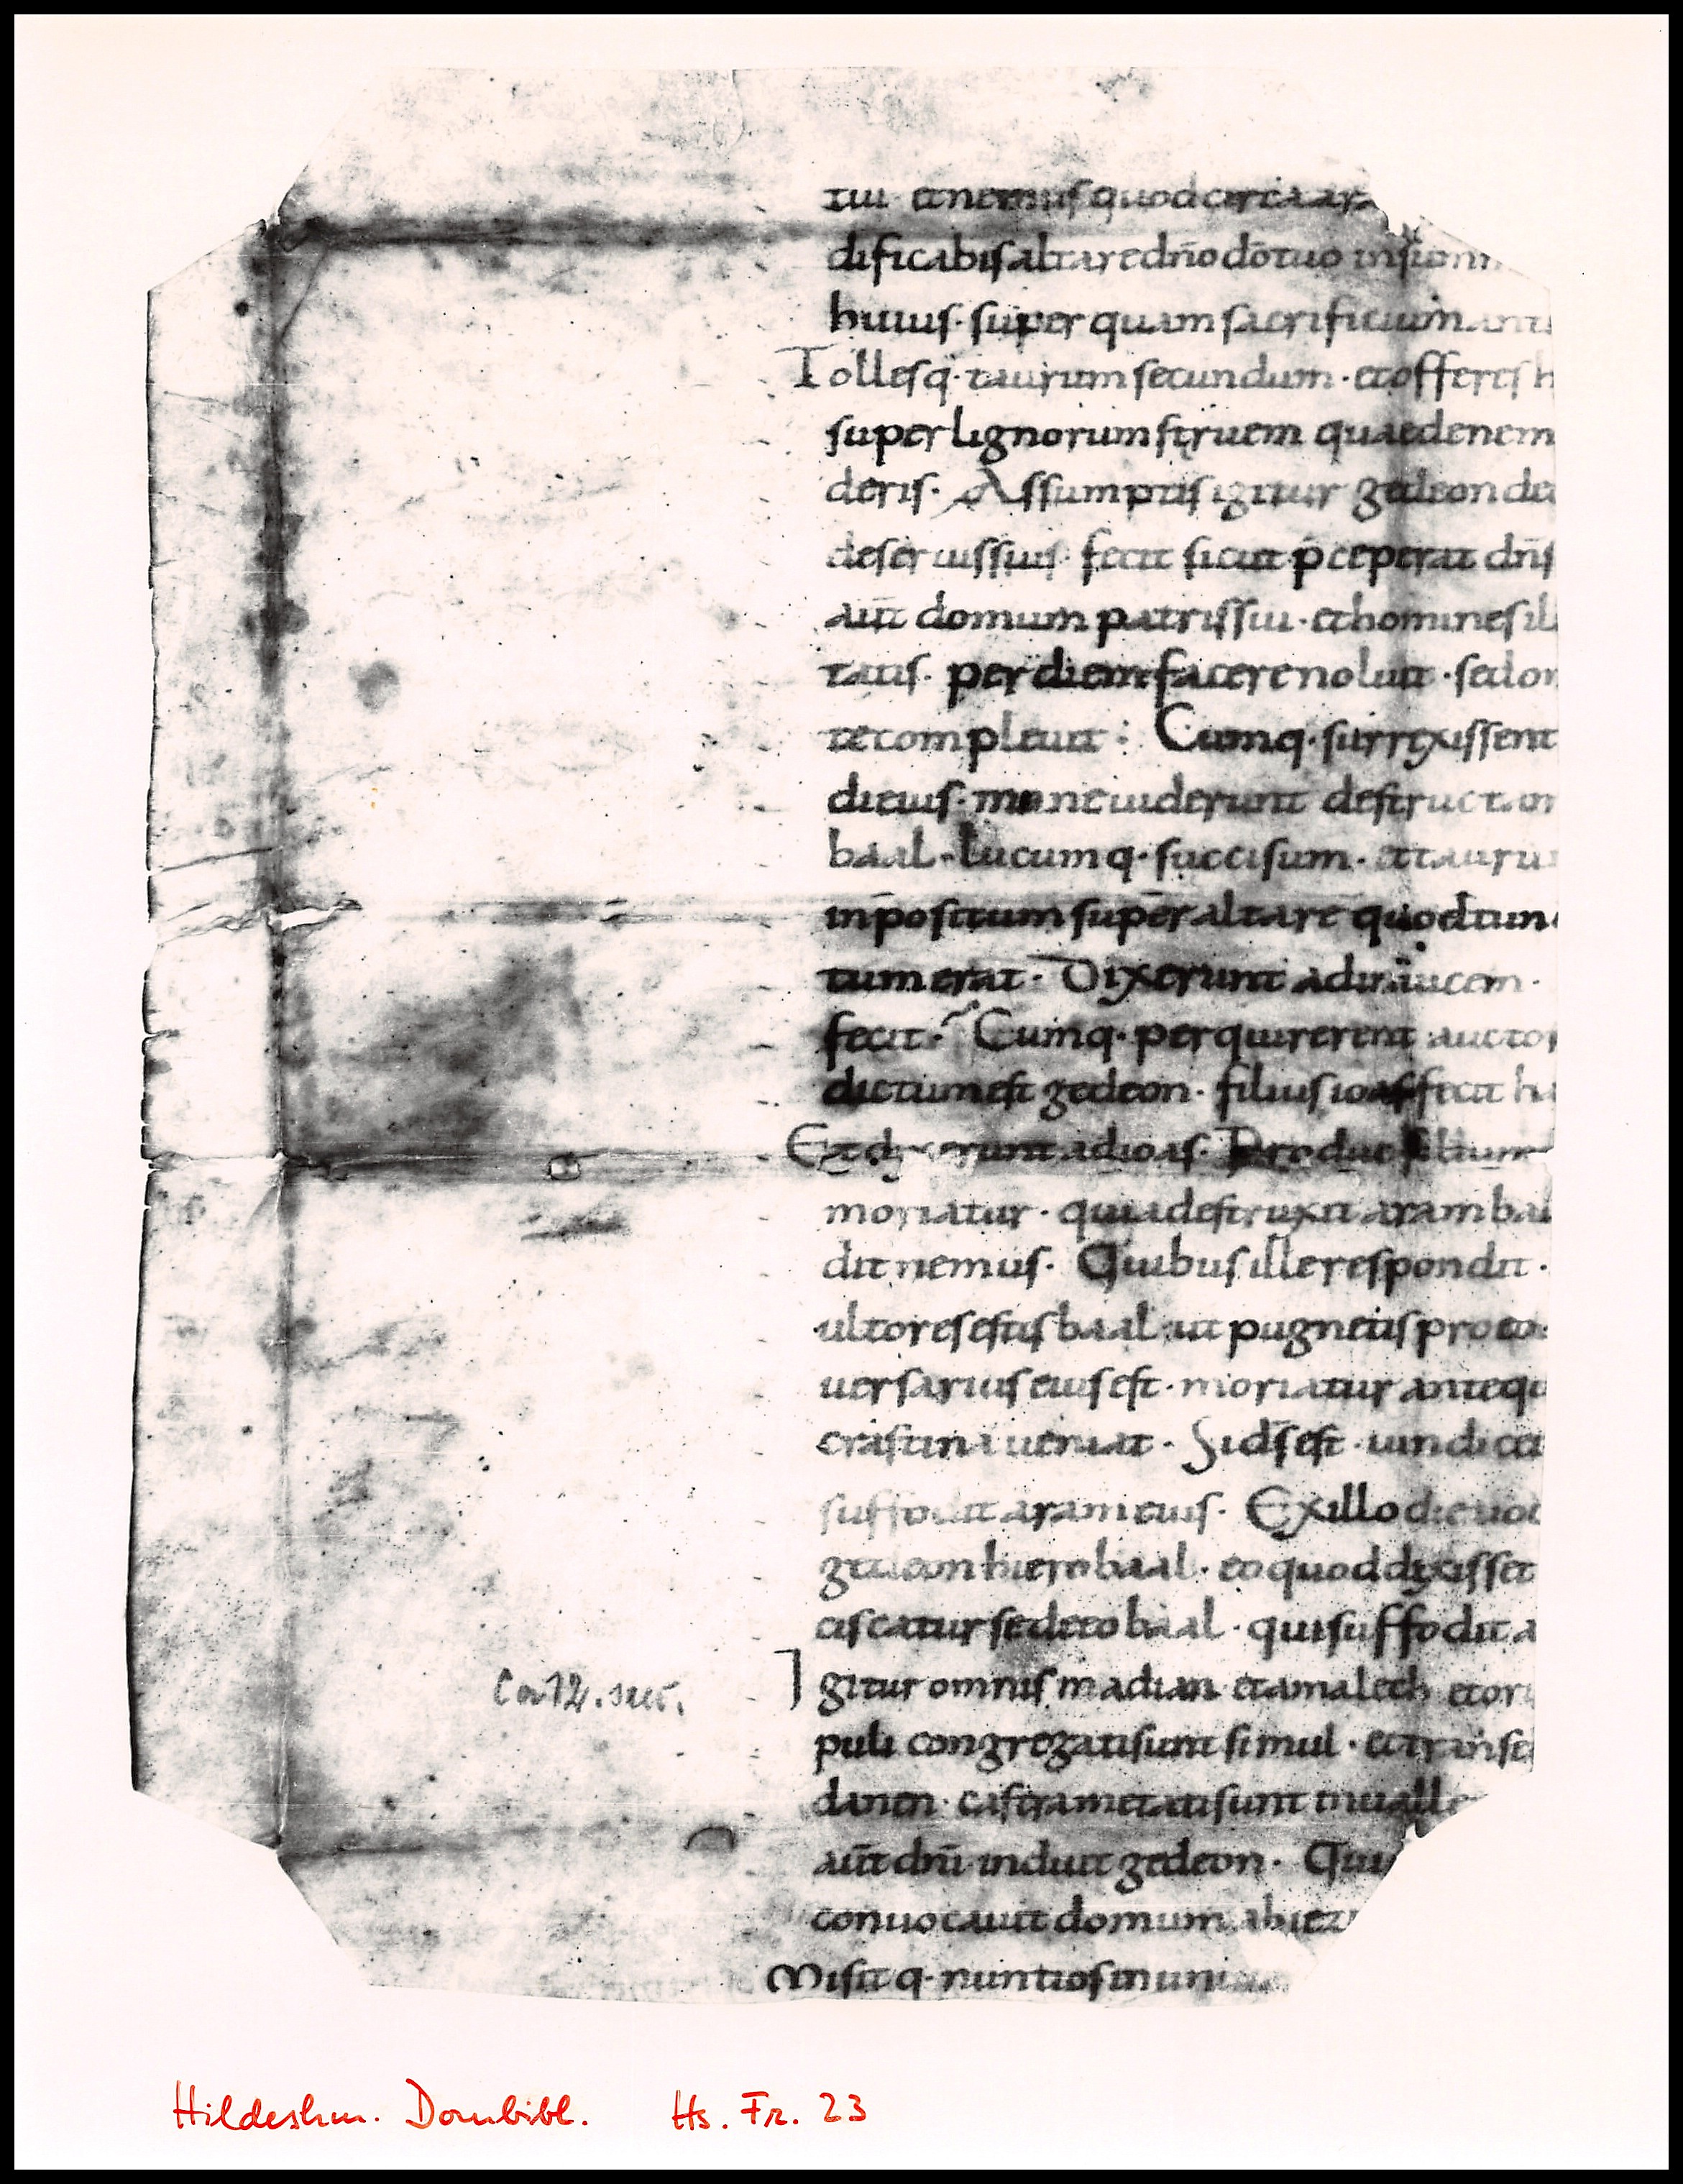 tui et nemus quod circa ar
dificabis altare dn̄o dō tuo in sum
huius· super quam sacrificium ant
Tollesq· taurum secundum· et offeres h
super lignorum struem quae de nem
deris· Assumptis igitur gedeon de
de seruis suis· fecit sicut p̄ceperat dn̄s
aūt domum patris sui· et homines il
tatis· per diem facere noluit· sed om
te compleuit· Cumq· surrexissent
di eius· mane uiderunt destructam
baal· lucumq· succisum· et tauru
inpositum super altare quod tun
tum erat· Dixerunt ad inuicem·
fecit· Cumq· perquirerent aucto
dictum est gedeon· filius ioas fecit h
Et dixerunt ad ioas· Produc filium
moriatur· quia destruxit aram ba
dit nemus· Quibus ille respondit·
ultores estis baal ut pugnetis pro eo·
uersarius eius est· moriatur antequ
crastina ueniat· Si ds̄ est· uindicet
suffodit aram eius· Ex illo die uoc
gedeon hierobaal· eo quod dixisset
ciscatur se de eo baal· qui suffodit a
Igitur omnis madian et amalech et ori
puli congregati sunt simul· et transe
danen· castrametati sunt in ualle
aūt dn̄i induit gedeon· Qui
conuocauit domum abiez
Misitq· nuntios in uni
Hildeshm. Dombibl. Hs. Fr. 23